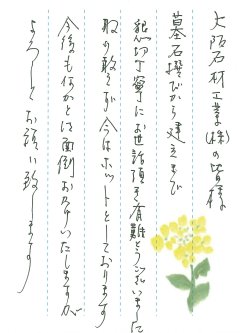 大阪石材工業(株)の皆様
墓石撰びから建立まで
懇切丁寧にお世話頂き有難とうございました
取り敢えず今はホットとしております
今後も何かとご面倒おかけいたしますが
よろしくお願い致します